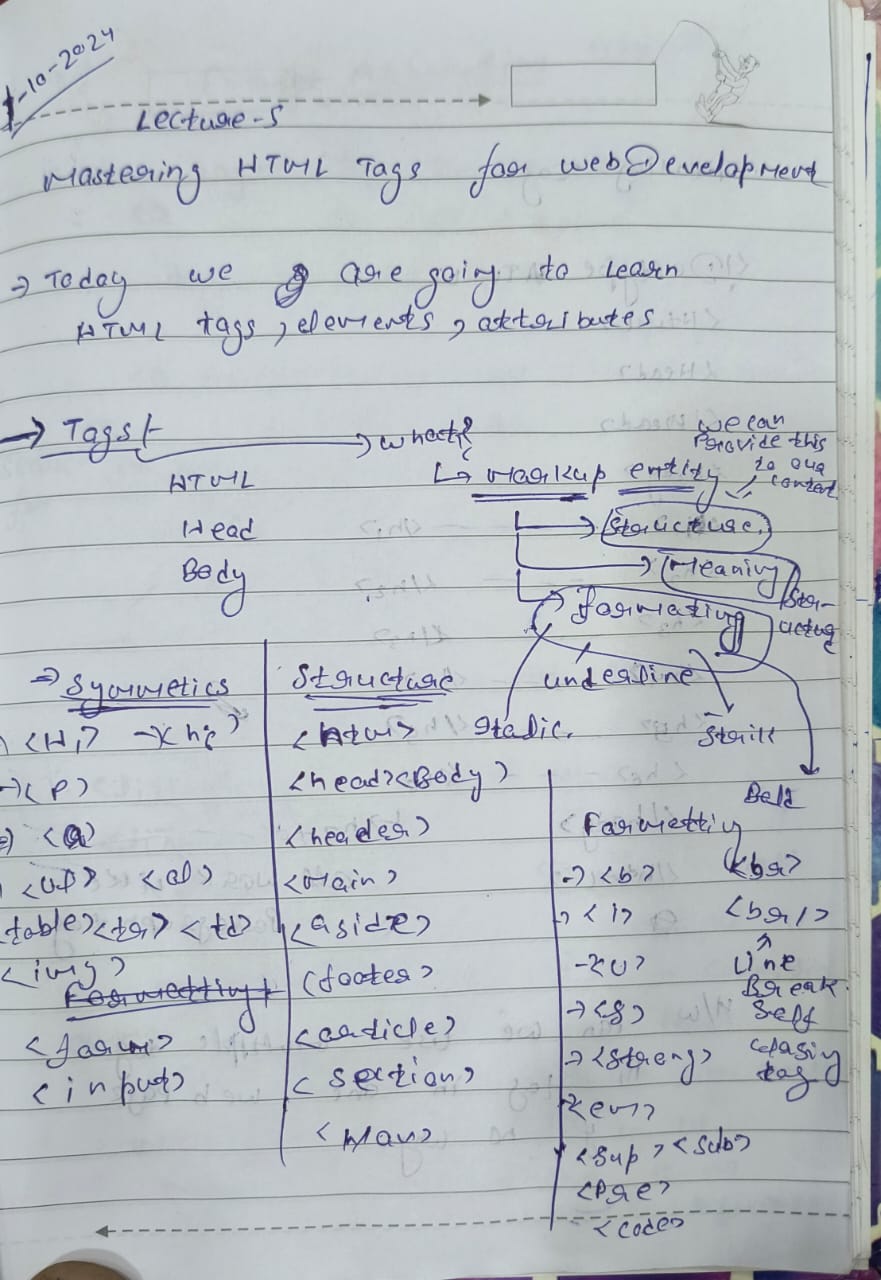 1-10-2024
Lecture-5
Mastering HTML Tags for web Development
→ Today we are going to learn
HTML tags, elements, attributes
→ Tags :-
→ what?
HTML
Head
Body
↳ Markup entity
we can
Provide this
to our
content
→ Structure
→ Meaning
→ formating
Struct
underline
Italic
Bold
⇒ Symmetics
<H1> → <h6>
→ <P>
<a>
<ul> <ol>
<table> <tr> <td>
<img>
Formetting
<form>
<input>
Structure
<html>
<head> <Body>
<header>
<Main>
<aside>
<footer>
<article>
<section>
Formetting
→ <b>
→ <i>
→ <u>
→ <s>
→ <strong>
<em>
<sup> <sub>
<Pre>
<code>
<br>
<br/>
Line
Break
Self
closing
tag